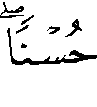 حُسْنًا ۖ